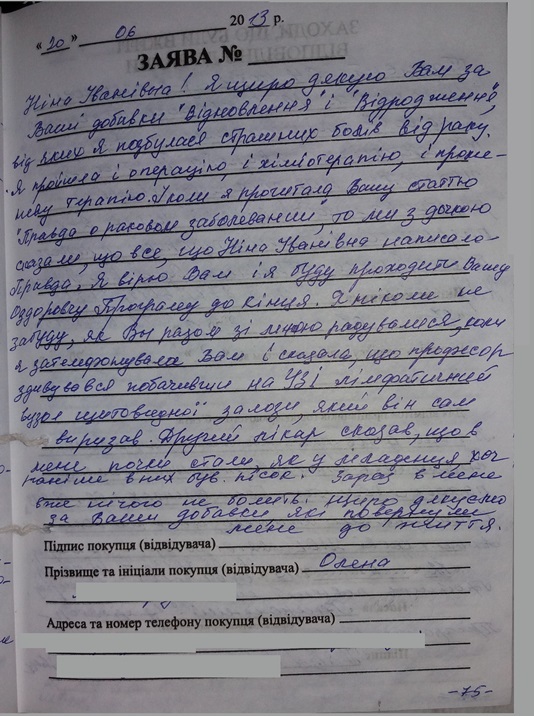 « 20 » 06 2013 р.
ЗАЯВА №
Ніна Іванівна! Я щиро дякую Вам за
Ваші добавки "Відновлення" і "Відродження",
від яких я позбулася страшних болів від раку.
Я пройшла і операцію, і хіміотерапію, і проме-
неву терапію. І коли я прочитала Вашу статтю
"Правда о раковом заболевании, то ми з дочкою
сказали, що все, що Ніна Іванівна написала-
правда. Я вірю Вам і я буду проходити Вашу
Оздоровчу Програму до кінця. Я ніколи не
забуду, як Ви разом зі мною радувалися, коли
я зателефонувала Вам і сказала, що професор
здивувався побачивши на УЗІ лімфатичний
вузол щитовидної залози, який він сам
вирізав. Другий лікар сказав, що в
мене почки стали, як у младенця, хоч
раніше в них був пісок. Зараз в мене
вже нічого не болить. Щиро дякуємо
за Ваши добавки які повернули
мене до життя.
Підпис покупця (відвідувача)
Прізвище та ініціали покупця (відвідувача) Олена
Адреса та номер телефону покупця (відвідувача)
-75-